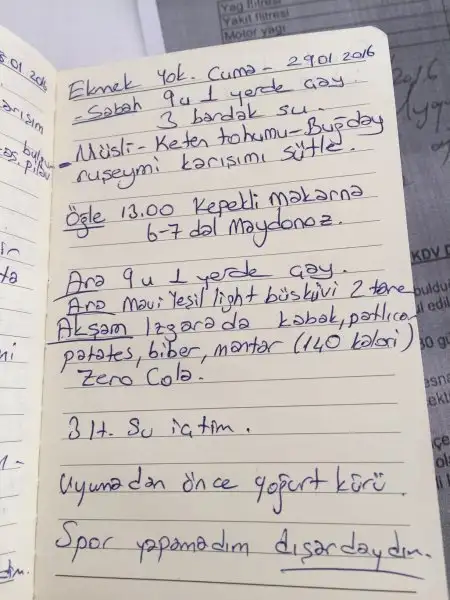 Yağ filtresi
Yakıt filtresi
Motor yağı
Ekmek Yok. Cuma - 29 01 2016
- Sabah 9u 1 yerde çay.
3 bardak su.
- Müsli - Keten tohumu - Buğday
ruşeymi karışımı sütle.
Öğle 13.00 Kepekli makarna
6-7 dal Maydonoz.
Ara 9u 1 yerde çay.
Ara Mavi Yeşil light büsküvi 2 tane
Akşam Izgarada kabak, patlıcan
patates, biber, mantar (140 kalori)
Zero Cola.
3 lt. Su içtim.
Uyumadan önce yoğurt kürü.
Spor yapamadım dışardaydım.
KDV